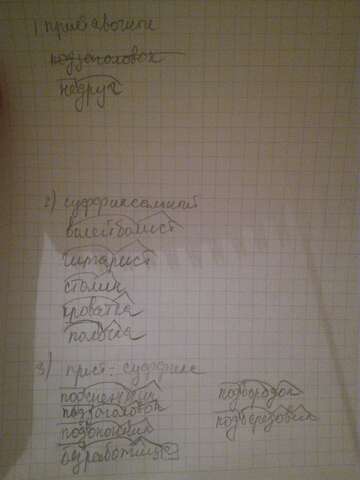 1) приставочный
подзаголовок
недруг
2) суффиксальный
волейболист
гитарист
столик
кроватка
полоска
3) прист-суффикс
подснежник
подзаголовок
подоконник
безработица
подбородок
подберёзовик